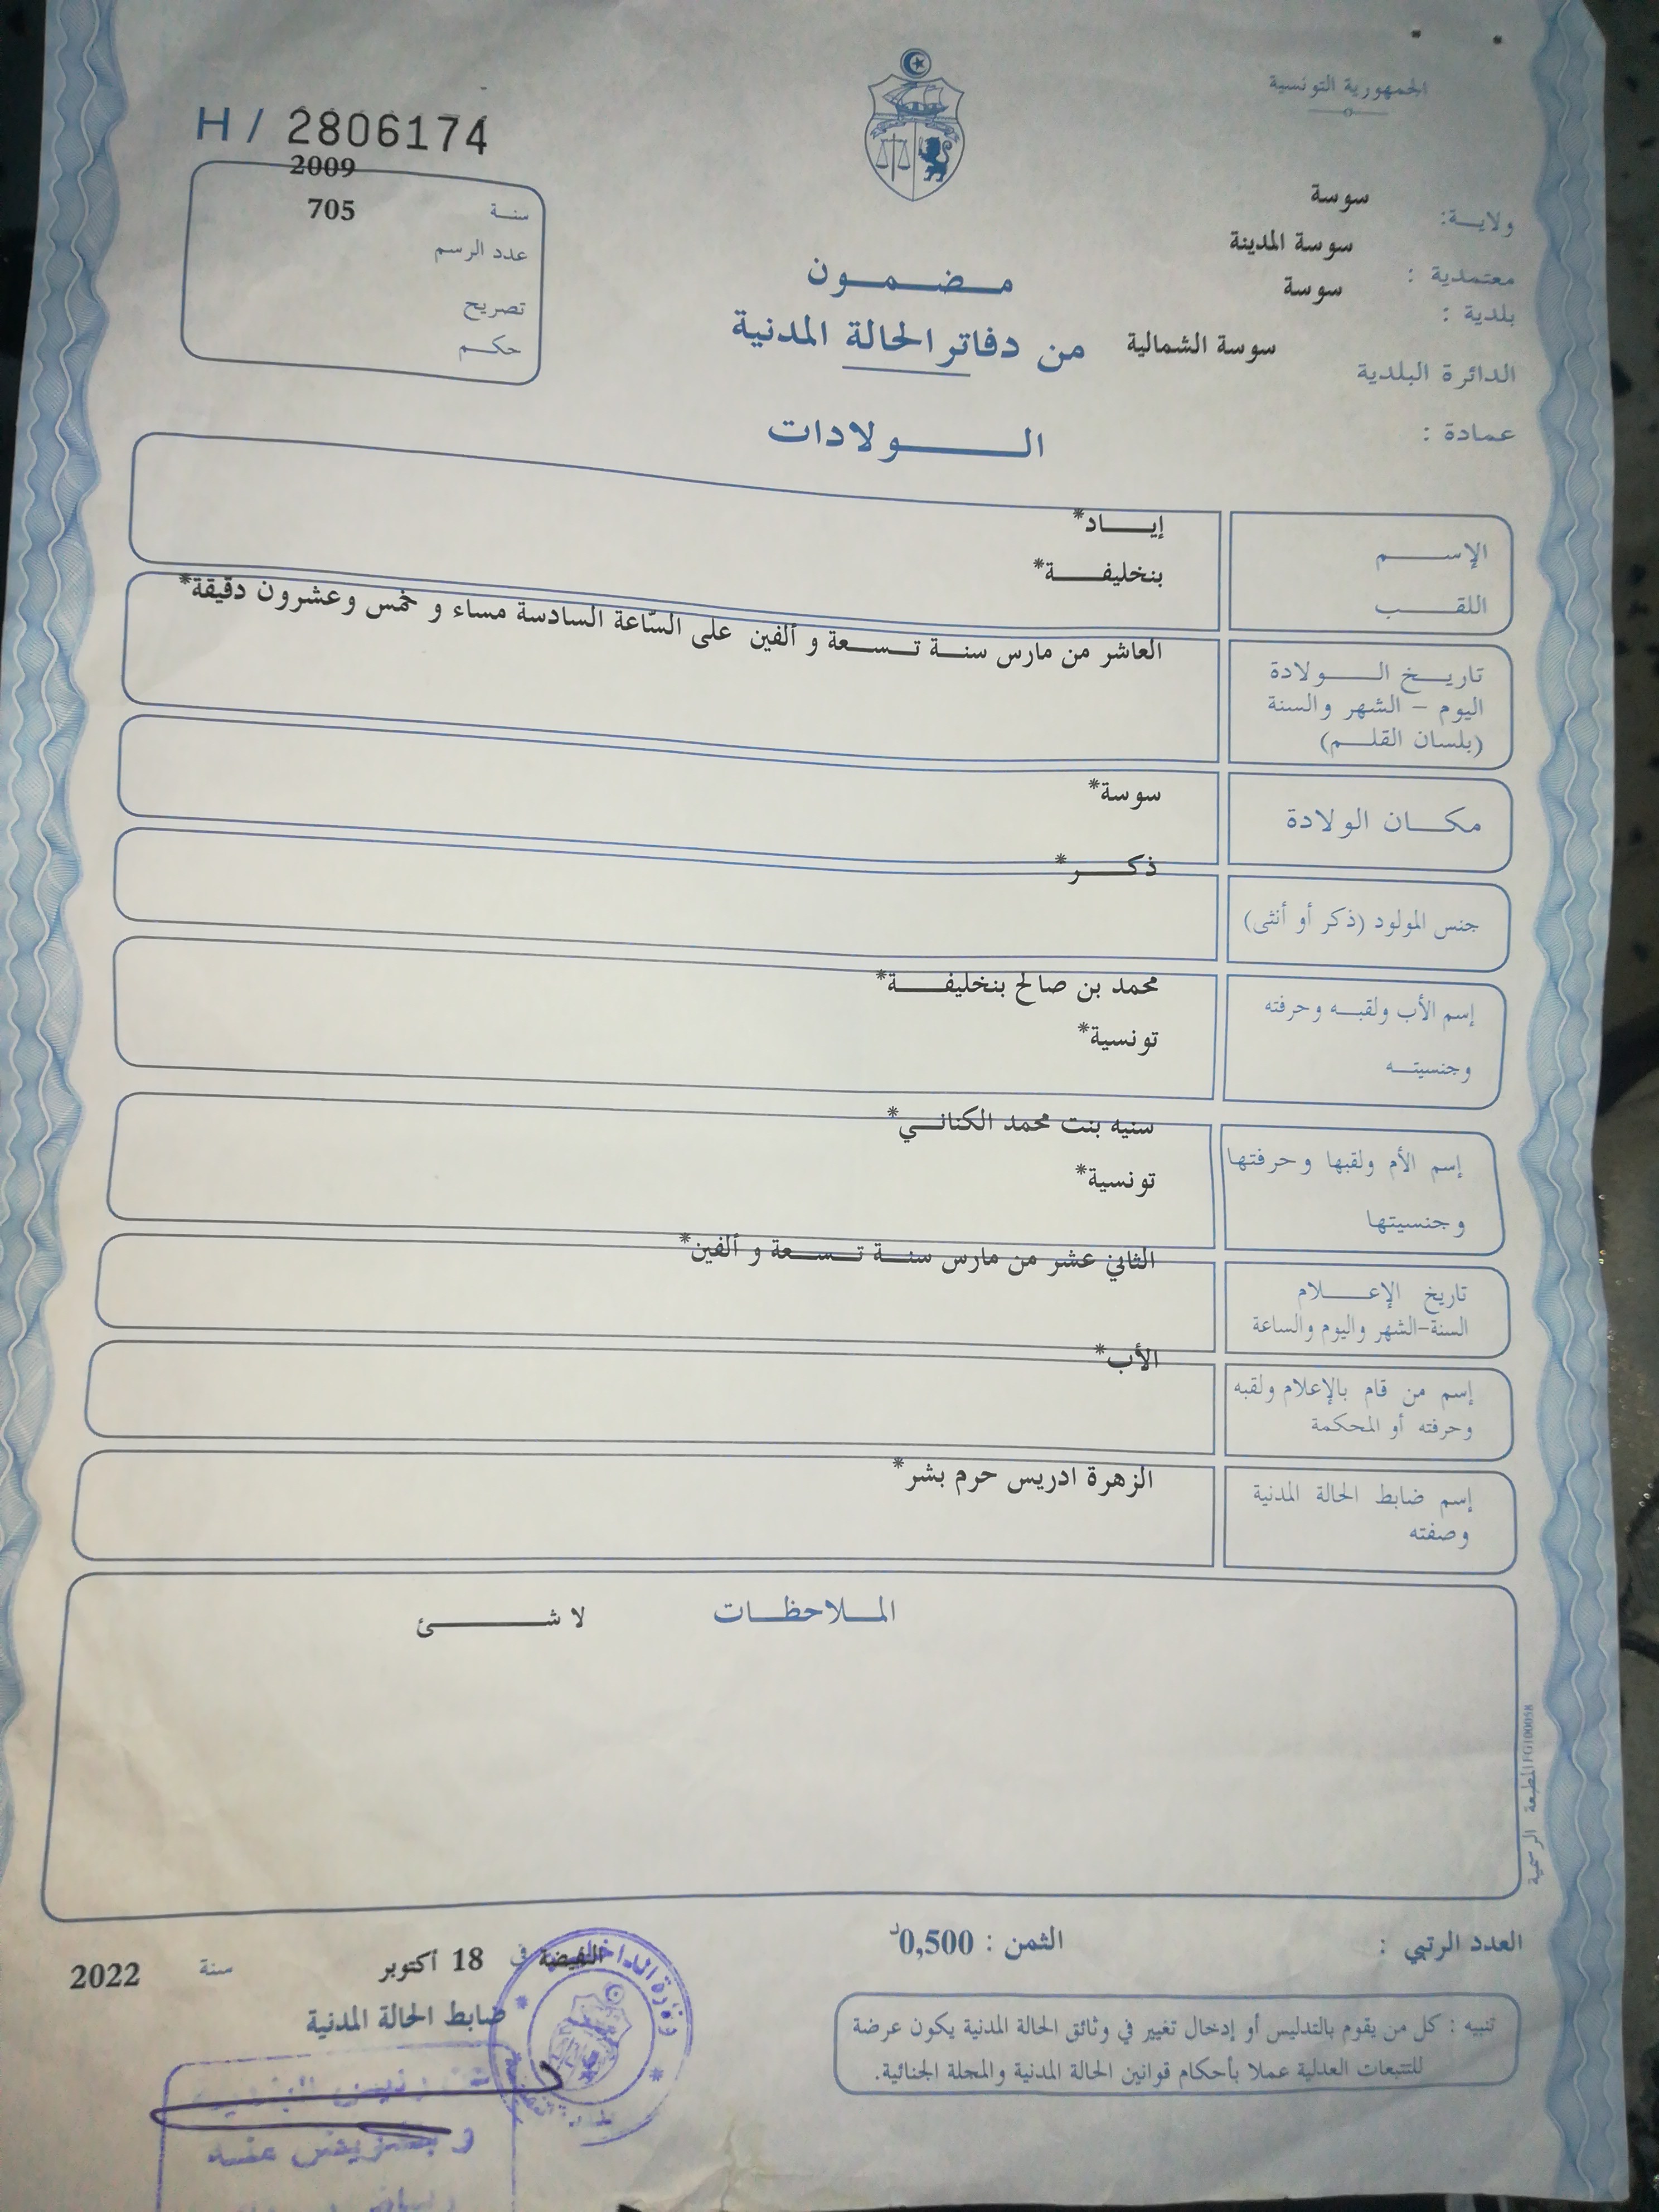 الجمهورية التونسية
H / 2806174
ولاية: سوسة
معتمدية : سوسة المدينة
بلدية : سوسة
الدائرة البلدية سوسة الشمالية
عمادة :
2009
سنة 705
عدد الرسم
تصريح
حكم
مضمون
من دفاتر الحالة المدنية
الولادات
الإسم إياد*
اللقب بنخليفة*
تاريخ الولادة
اليوم - الشهر والسنة
(بلسان القلم)
العاشر من مارس سنة تسعة و ألفين على السّاعة السادسة مساء و خمس وعشرون دقيقة*
مكان الولادة سوسة*
جنس المولود (ذكر أو أنثى) ذكر*
إسم الأب ولقبه وحرفته محمد بن صالح بنخليفة*
وجنسيته تونسية*
إسم الأم ولقبها وحرفتها سنيه بنت محمد الكناني*
وجنسيتها تونسية*
تاريخ الإعلام الثاني عشر من مارس سنة تسعة و ألفين*
السنة-الشهر واليوم والساعة
إسم من قام بالإعلام ولقبه الأب*
وحرفته أو المحكمة
إسم ضابط الحالة المدنية الزهرة ادريس حرم بشر*
وصفته
الملاحظات لا شئ
المطبعة الرسمية
العدد الرتبي :
الثمن : 0,500د
النفيضة في 18 أكتوبر سنة 2022
ضابط الحالة المدنية
تنبيه : كل من يقوم بالتدليس أو إدخال تغيير في وثائق الحالة المدنية يكون عرضة
للتتبعات العدلية عملا بأحكام قوانين الحالة المدنية والمجلة الجنائية.
وزارة الداخلية
وبتفويض منه